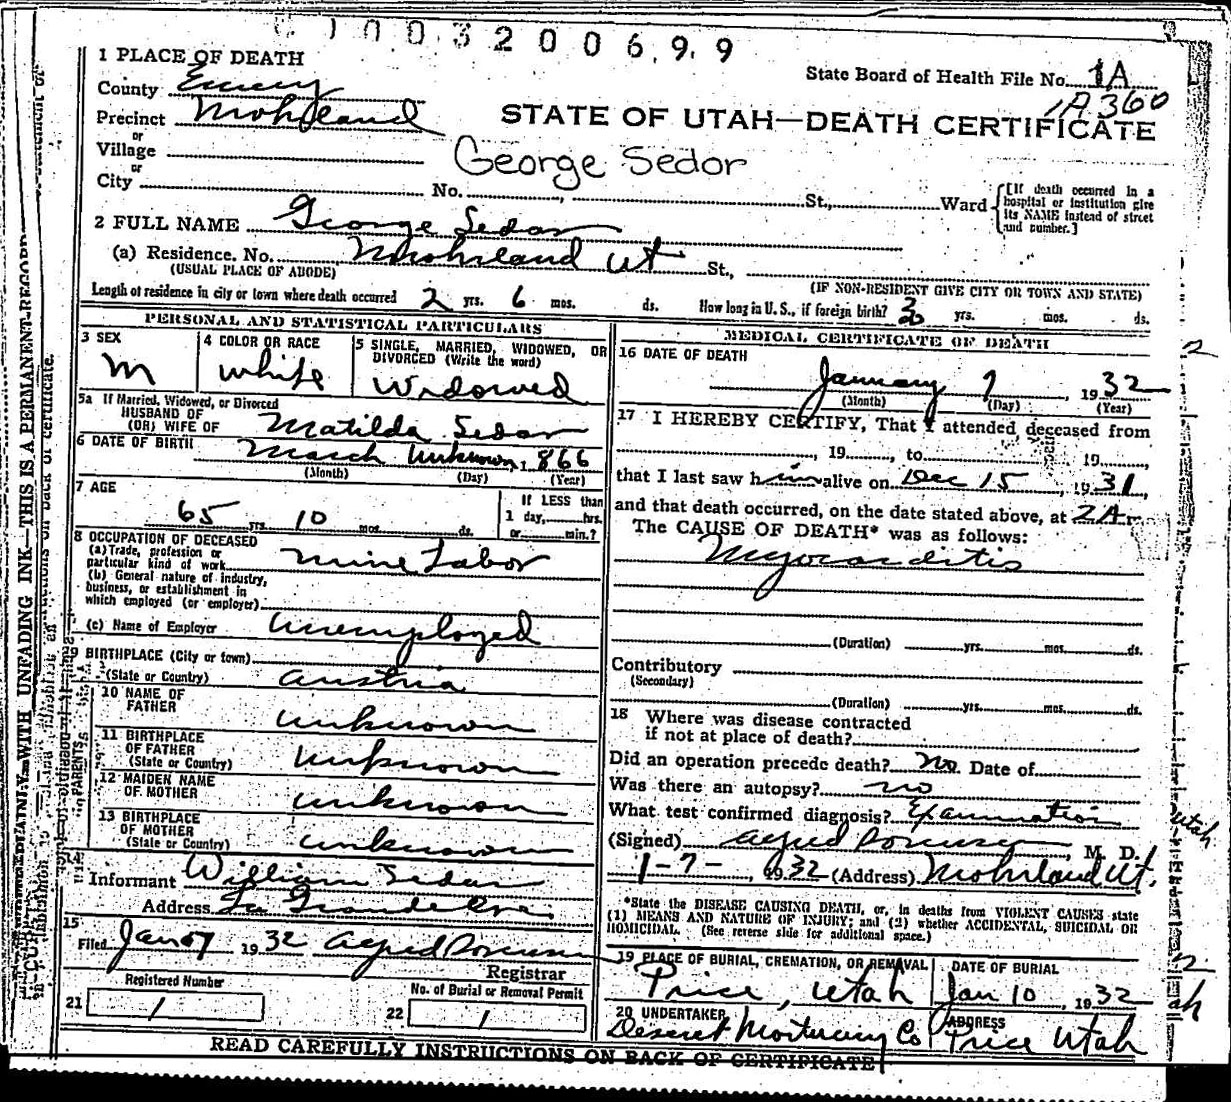 1003200699
1 PLACE OF DEATH
State Board of Health File No. 1A
1A360
County Emery
Precinct Mohrland
STATE OF UTAH—DEATH CERTIFICATE
or
Village
George Sedor
or
City No. St., Ward
[If death occurred in a hospital or institution give its NAME instead of street and number.]
2 FULL NAME George Sedor
(a) Residence. No. Mohrland Ut St.,
(USUAL PLACE OF ABODE)
(IF NON-RESIDENT GIVE CITY OR TOWN AND STATE)
Length of residence in city or town where death occurred 2 yrs. 6 mos. ds. How long in U. S., if foreign birth? yrs. mos. ds.
PERSONAL AND STATISTICAL PARTICULARS
3 SEX
M
4 COLOR OR RACE
white
5 SINGLE, MARRIED, WIDOWED, OR
DIVORCED (Write the word)
Widowed
5a If Married, Widowed, or Divorced
HUSBAND OF
(OR) WIFE OF Matilda Sedor
6 DATE OF BIRTH March Unknown 1866
(Month) (Day) (Year)
7 AGE
65 yrs. 10 mos. ds.
If LESS than
1 day, hrs.
or min.?
8 OCCUPATION OF DECEASED
(a) Trade, profession or
particular kind of work Mine Labor
(b) General nature of industry,
business, or establishment in
which employed (or employer)
(c) Name of Employer Unemployed
9 BIRTHPLACE (City or town)
(State or Country) Austria
PARENTS
10 NAME OF
FATHER unknown
11 BIRTHPLACE
OF FATHER
(State or Country) Unknown
12 MAIDEN NAME
OF MOTHER unknown
13 BIRTHPLACE
OF MOTHER
(State or Country) unknown
14
Informant William Sedor
Address La Grande Ore.
15
Filed Jan 7 1932 Alfred Sorenson
Registrar
Registered Number
21 1
No. of Burial or Removal Permit
22 1
MEDICAL CERTIFICATE OF DEATH
16 DATE OF DEATH
January 7, 1932
(Month) (Day) (Year)
17 I HEREBY CERTIFY, That I attended deceased from
, 19, to 19
that I last saw him alive on Dec 15, 1931,
and that death occurred, on the date stated above, at 2 A m.
The CAUSE OF DEATH* was as follows:
Myocarditis
(Duration) yrs. mos. ds.
Contributory
(Secondary)
(Duration) yrs. mos. ds.
18 Where was disease contracted
if not at place of death?
Did an operation precede death? No. Date of
Was there an autopsy? no
What test confirmed diagnosis? Examination
(Signed) Alfred Sorenson, M. D.
1-7-, 1932 (Address) Mohrland Ut.
*State the DISEASE CAUSING DEATH, or, in deaths from VIOLENT CAUSES state
(1) MEANS AND NATURE OF INJURY; and (2) whether ACCIDENTAL, SUICIDAL OR
HOMICIDAL. (See reverse side for additional space.)
19 PLACE OF BURIAL, CREMATION, OR REMOVAL
Price, Utah
DATE OF BURIAL
Jan 10, 1932
20 UNDERTAKER
Deseret Mortuary Co
ADDRESS
Price Utah
READ CAREFULLY INSTRUCTIONS ON BACK OF CERTIFICATE
WITH UNFADING INK—THIS IS A PERMANENT RECORD
back of certificate.
2
Utah
2